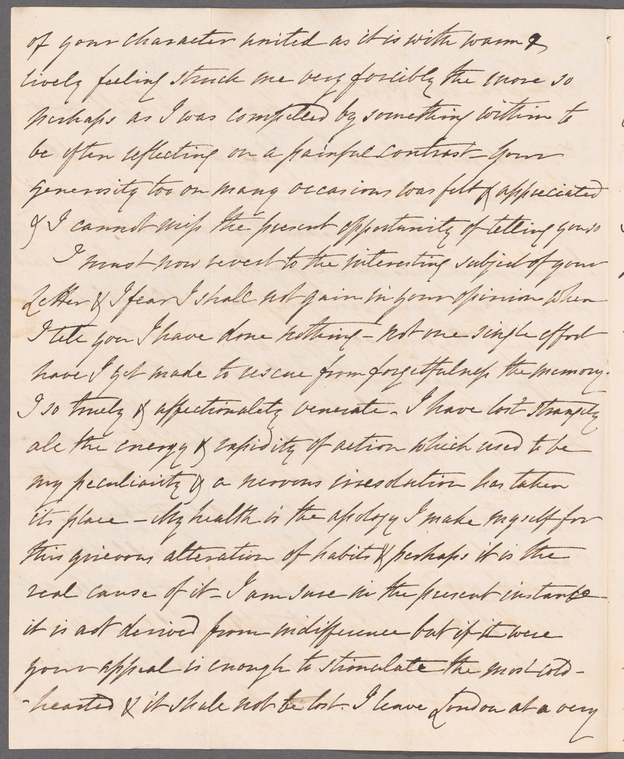 of your character united as it is with warm &
lively feeling struck me very forcibly the more so
perhaps as I was compelled by something within to
be often reflecting on a painful contrast - Your
generosity too on many occasions was felt & appreciated
& I cannot miss the present opportunity of telling you so
I must now revert to the interesting subject of your
Letter & I fear I shall not gain in your opinion when
I tell you I have done nothing - not one single effort
have I yet made to rescue from forgetfulness the memory
I so truly & affectionately venerate - I have lost strangely
all the energy & rapidity of action which used to be
my peculiarity & a nervous irresolution has taken
its place - My health is the apology I make myself for
this grievous alteration of habits & perhaps it is the
real cause of it - I am sure in the present instance
it is not derived from indifference but if it were
your appeal is enough to stimulate the most cold-
-hearted & it shall not be lost. I leave London at a very